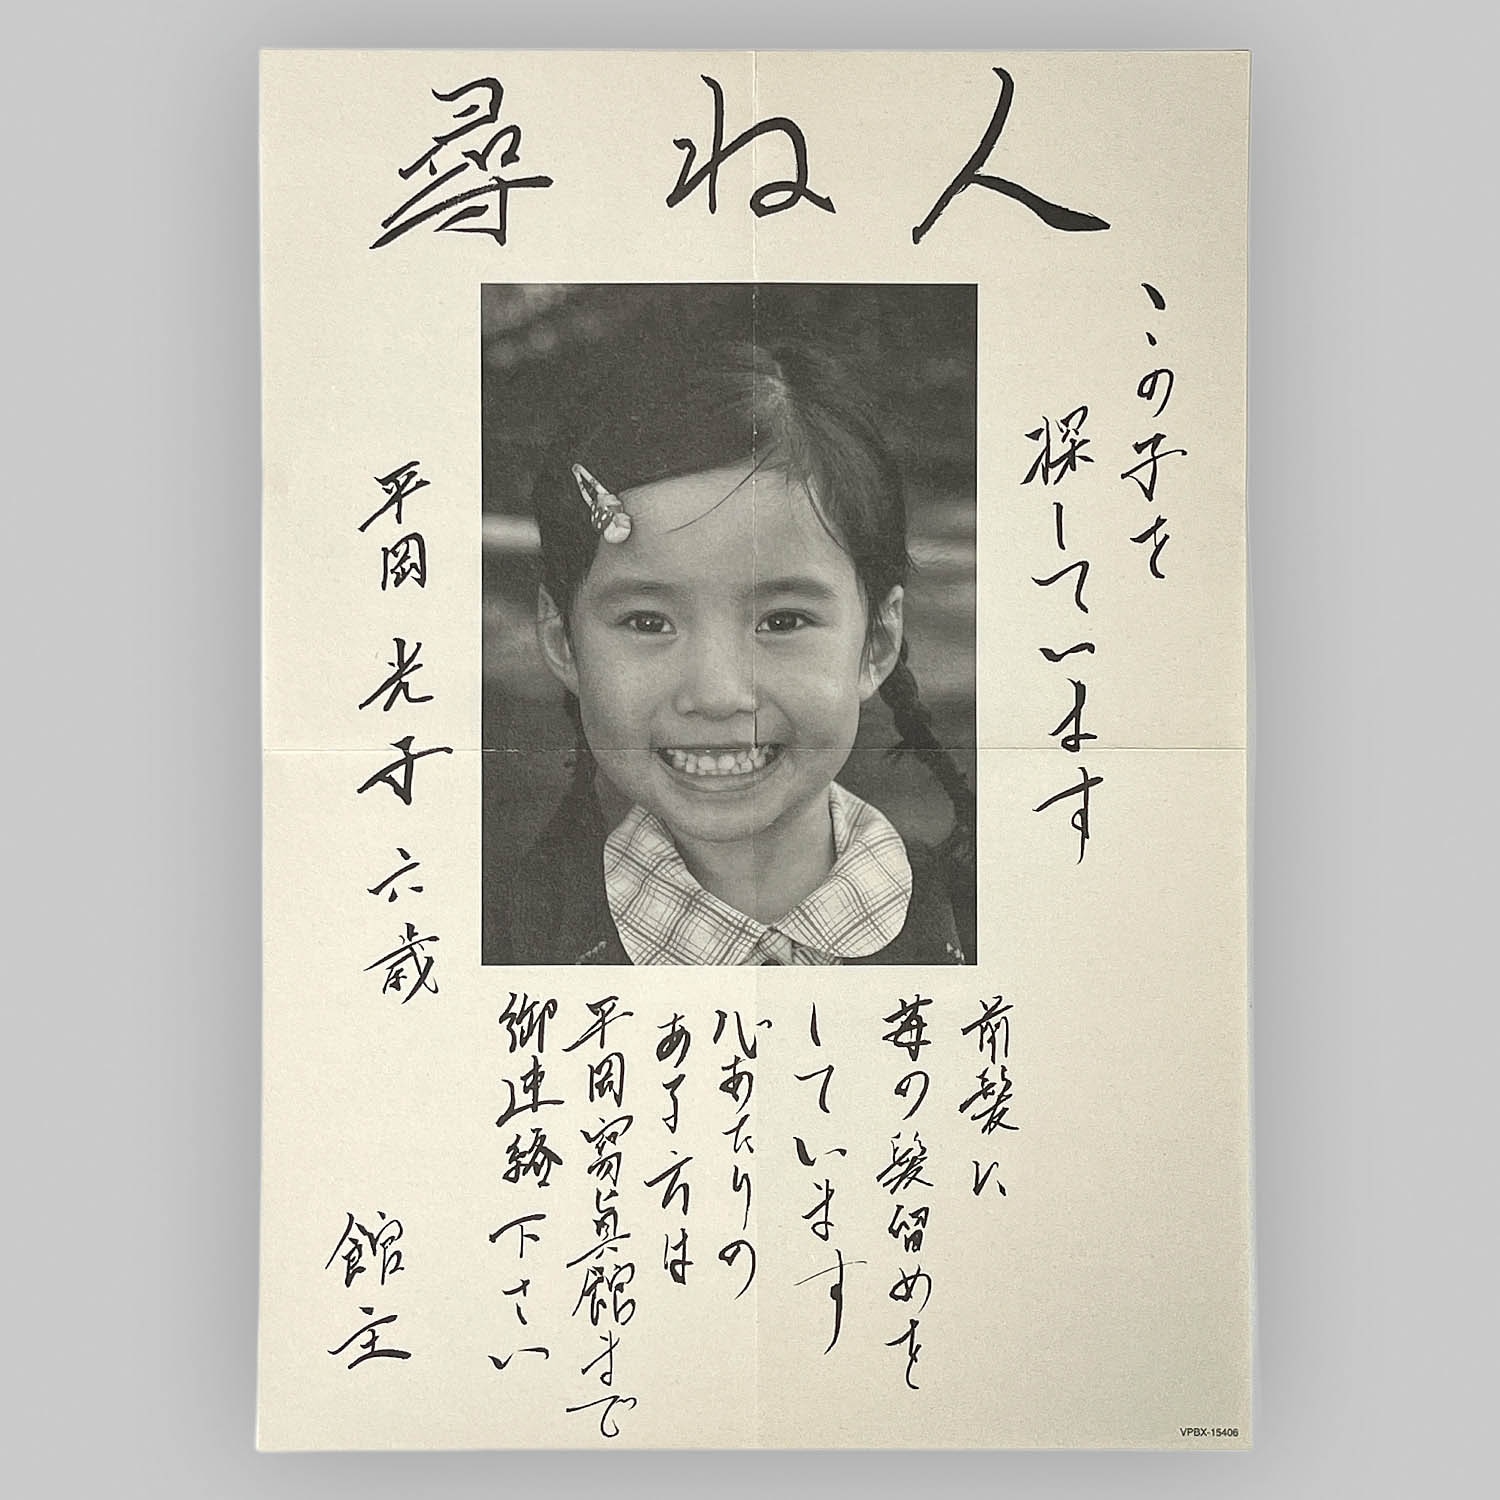 尋ね人
この子を
探しています
平岡光子 六歳
前髪に
苺の髪留めを
しています
心あたりの
ある方は
平岡寫眞館まで
御連絡下さい
館主
VPBX-15406